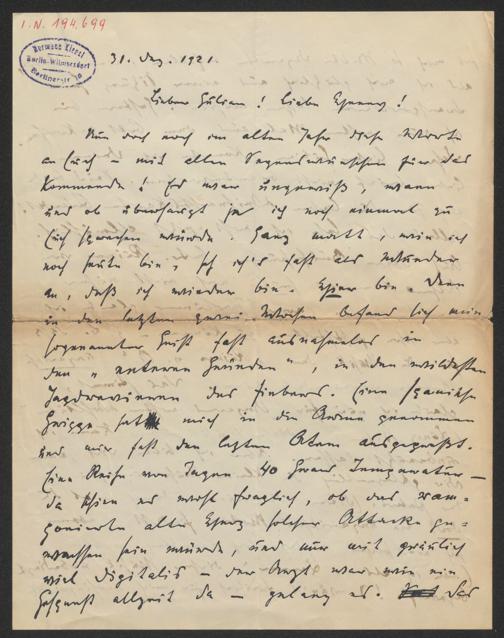 I.N. 194.699
Hermann Kienzl
Berlin-Wilmersdorf
Berlinerstr.
31. Dez. 1921.
Lieber Julian! Liebe !
Nun doch noch im alten Jahr diese Worte
an Euch – mit allen Segenswünschen für das
Kommende! Es war ungewiß, wann
und ob überhaupt je ich noch einmal zu
Euch sprechen würde. Ganz matt, wie ich
noch heute bin, seh ich's fast als Wunder
an, daß ich wieder bin. Hier bin. Denn
in den letzten zwei Wochen befand sich mein
sogenannter Geist fast ausnahmslos in
den „unteren Gründen“, in den wildesten
Jagdrevieren des Fiebers. Eine spanische
Grippe hat mich in die Arme genommen
und mir fast den letzten Atem ausgepreßt.
Eine Reihe von Tagen 40 Grad Temperatur –
da schien es wohl fraglich, ob das ram-
ponierte alte Herz solcher Attacke ge-
wachsen sein würde, und nur mit gräulich
viel Digitalis – der Arzt war wie ein
Gespenst allzeit da – gelang es. Das